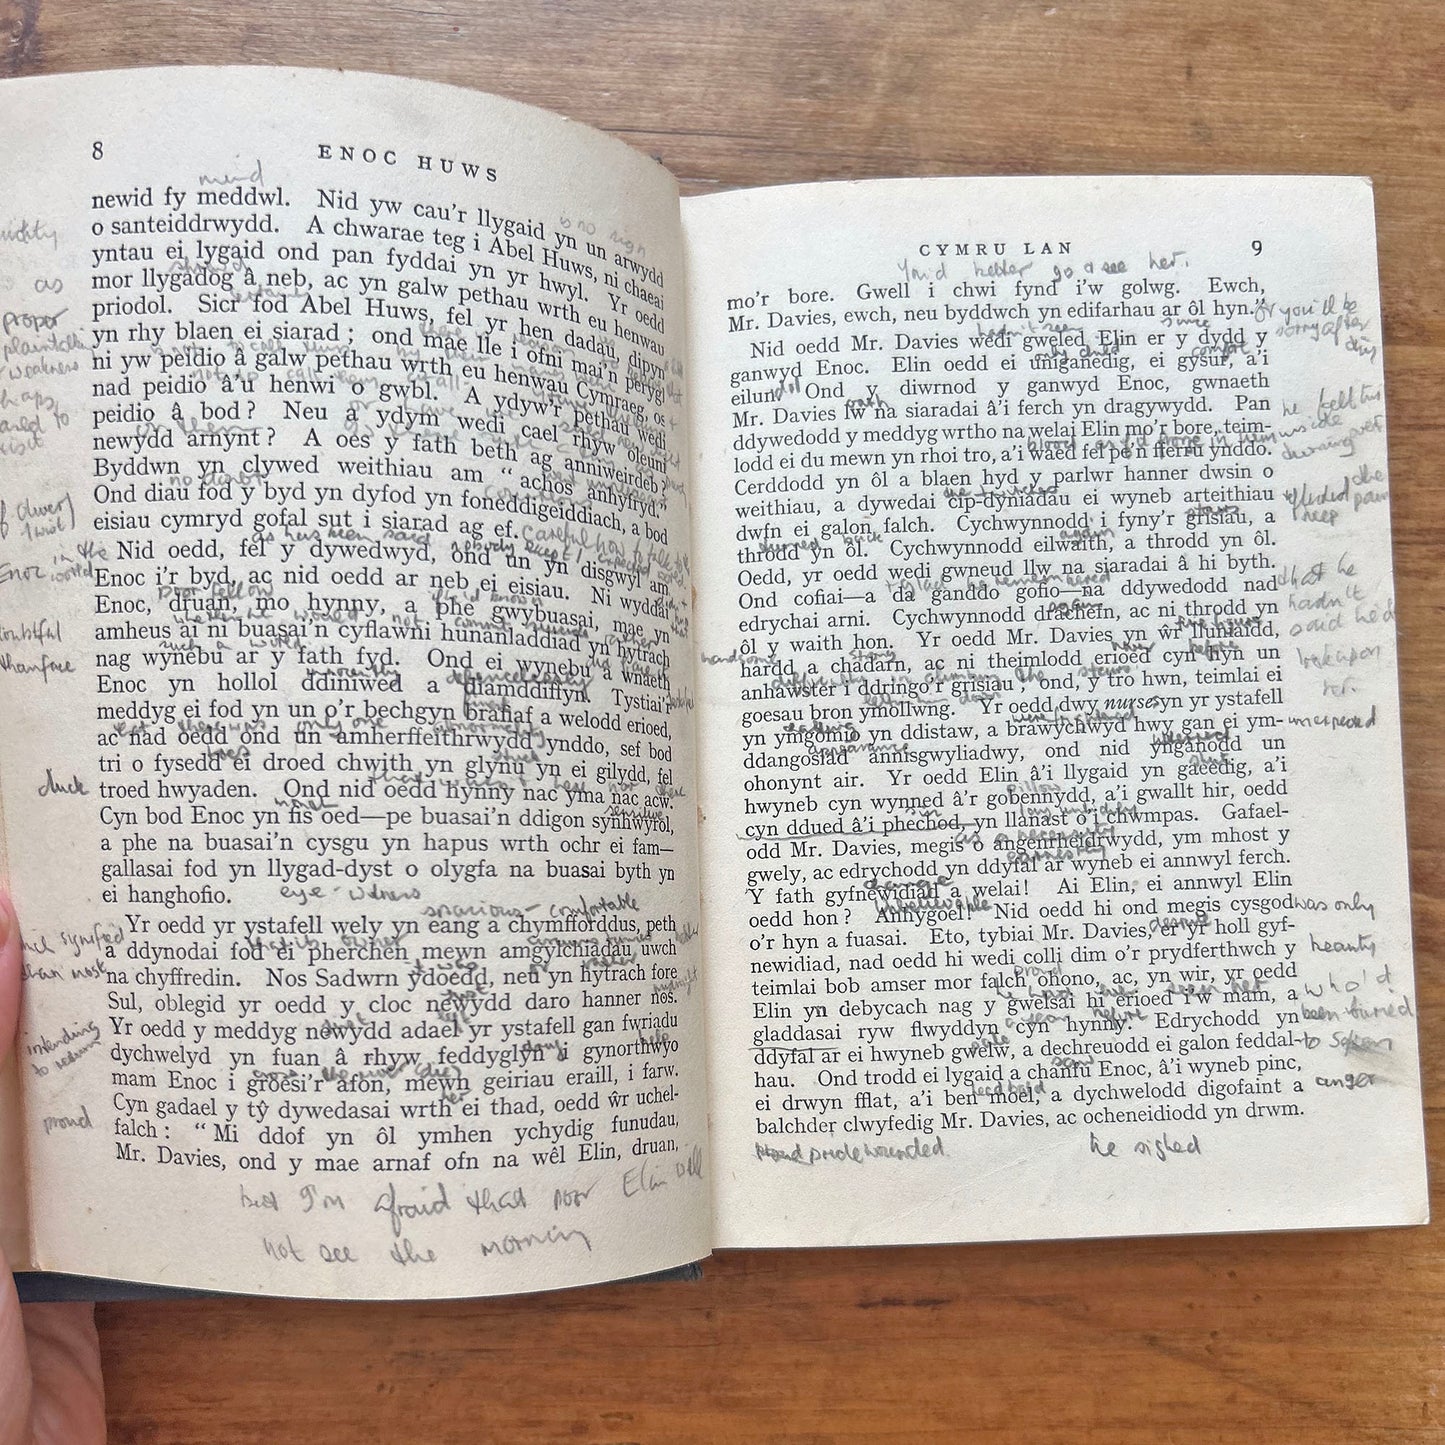 8 ENOC HUWS
mind
newid fy meddwl. Nid yw cau'r llygaid yn un arwydd
is no sign
o santeiddrwydd. A chwarae teg i Abel Huws, ni chaeai
yntau ei lygaid ond pan fyddai yn yr hwyl. Yr oedd
mor llygadog â neb, ac yn galw pethau wrth eu henwau
priodol. Sicr fod Abel Huws, fel yr hen dadau, dipyn
as
proper
yn rhy blaen ei siarad; ond mae lle i ofni mai'n perygl
ni yw peidio â galw pethau wrth eu henwau Cymraeg, os
weakness
nad peidio â'u henwi o gwbl. A ydyw'r pethau wedi
peidio â bod? Neu a ydym wedi cael rhyw oleuni
newydd arnynt? A oes y fath beth ag anniweirdeb?
Byddwn yn clywed weithiau am "achos anhyfryd."
no doubt
Ond diau fod y byd yn dyfod yn foneddigeiddiach, a bod
eisiau cymryd gofal sut i siarad ag ef.
Careful how to talk to the
as has been said nobody except I expected
Nid oedd, fel y dywedwyd, ond un yn disgwyl am
in the
Enoc world
Enoc i'r byd, ac nid oedd ar neb ei eisiau. Ni wyddai
Poor fellow
Enoc, druan, mo hynny, a phe gwybuasai, mae yn
whether he would not commit suicide rather
doubtful
amheus ai ni buasai'n cyflawni hunanladdiad yn hytrach
such a world
than face
nag wynebu ar y fath fyd. Ond ei wynebu a wnaeth
innocently defencelessly
Enoc yn hollol ddiniwed a diamddiffyn. Tystiai'r
meddyg ei fod yn un o'r bechgyn brafiaf a welodd erioed,
that there was only one abnormality
ac nad oedd ond un amherffeithrwydd ynddo, sef bod
toes
tri o fysedd ei droed chwith yn glynu yn ei gilydd, fel
duck
troed hwyaden. Ond nid oedd hynny nac yma nac acw.
Cyn bod Enoc yn fis oed—pe buasai'n ddigon synhwyrol,
sensitive
a phe na buasai'n cysgu yn hapus wrth ochr ei fam—
gallasai fod yn llygad-dyst o olygfa na buasai byth yn
ei hanghofio.
eye-witness
spacious-comfortable
Yr oedd yr ystafell wely yn eang a chymfforddus, peth
signified
a ddynodai fod ei pherchen mewn amgylchiadau uwch
than most
na chyffredin. Nos Sadwrn ydoedd, neu yn hytrach fore
or rather
Sul, oblegid yr oedd y cloc newydd daro hanner nos.
midnight
Yr oedd y meddyg newydd adael yr ystafell gan fwriadu
intending
to return
dychwelyd yn fuan â rhyw feddyglyn i gynorthwyo
help
cross the river (die)
mam Enoc i groesi'r afon, mewn geiriau eraill, i farw.
her
Cyn gadael y tŷ dywedasai wrth ei thad, oedd ŵr uchel-
proud
falch: "Mi ddof yn ôl ymhen ychydig funudau,
Mr. Davies, ond y mae arnaf ofn na wêl Elin, druan,
but I'm afraid that poor Elin will
not see the morning
CYMRU LAN 9
You'd better go & see her.
mo'r bore. Gwell i chwi fynd i'w golwg. Ewch,
Mr. Davies, ewch, neu byddwch yn edifarhau ar ôl hyn."
or you'll be
sorry after
this
hadn't seen since
Nid oedd Mr. Davies wedi gweled Elin er y dydd y
only child comfort
ganwyd Enoc. Elin oedd ei unig­anedig, ei gysur, a'i
idol
eilun. Ond y diwrnod y ganwyd Enoc, gwnaeth
oath
Mr. Davies lw na siaradai â'i ferch yn dragywydd. Pan
ddywedodd y meddyg wrtho na welai Elin mo'r bore, teim-
he felt his
inside
turning over
blood as if it froze in him
lodd ei du mewn yn rhoi tro, a'i waed fel pe'n fferru ynddo.
Cerddodd yn ôl a blaen hyd y parlwr hanner dwsin o
the twitches
weithiau, a dywedai cip-dyniadau ei wyneb arteithiau
reflected the
deep pain
stairs
dwfn ei galon falch. Cychwynnodd i fyny'r grisiau, a
turned back again
throdd yn ôl. Cychwynnodd eilwaith, a throdd yn ôl.
Oedd, yr oedd wedi gwneud llw na siaradai â hi byth.
he remembered
that he
hadn't
said he'd
look upon
her.
Ond cofiai—a da ganddo gofio—na ddywedodd nad
again
edrychai arni. Cychwynnodd drachefn, ac ni throdd yn
ôl y waith hon. Yr oedd Mr. Davies yn ŵr lluniaidd,
handsome strong never before
hardd a chadarn, ac ni theimlodd erioed cyn hyn un
difficulty in climbing the stairs
anhawster i ddringo'r grisiau; ond, y tro hwn, teimlai ei
goesau bron ymollwng. Yr oedd dwy nurse yn yr ystafell
yn ymgomio yn ddistaw, a brawychwyd hwy gan ei ym-
appearance unexpected
ddangosiad annisgwyliadwy, ond nid ynganodd un
uttered
shut
ohonynt air. Yr oedd Elin â'i llygaid yn gaeëdig, a'i
pillow
hwyneb cyn wynned â'r gobennydd, a'i gwallt hir, oedd
cyn ddued â'i phechod, yn llanast o'i chwmpas. Gafael-
as a necessity
odd Mr. Davies, megis o angenrheidrwydd, ym mhost y
earnestly
gwely, ac edrychodd yn ddyfal ar wyneb ei annwyl ferch.
change
Y fath gyfnewidiad a welai! Ai Elin, ei annwyl Elin
unbelievable
oedd hon? Anhygoel! Nid oedd hi ond megis cysgod
was only
despite
o'r hyn a fuasai. Eto, tybiai Mr. Davies, er yr holl gyf-
newidiad, nad oedd hi wedi colli dim o'r prydferthwch y
beauty
proud
teimlai bob amser mor falch ohono, ac, yn wir, yr oedd
Elin yn debycach nag y gwelsai hi erioed i'w mam, a
who'd
been buried
a year before
gladdasai ryw flwyddyn cyn hynny. Edrychodd yn
pale
ddyfal ar ei hwyneb gwelw, a dechreuodd ei galon feddal-
to soften
saw
hau. Ond trodd ei lygaid a chanfu Enoc, â'i wyneb pinc,
bald
ei drwyn fflat, a'i ben moel; a dychwelodd digofaint a
anger
balchder clwyfedig Mr. Davies, ac ocheneidiodd yn drwm.
pride wounded.
he sighed